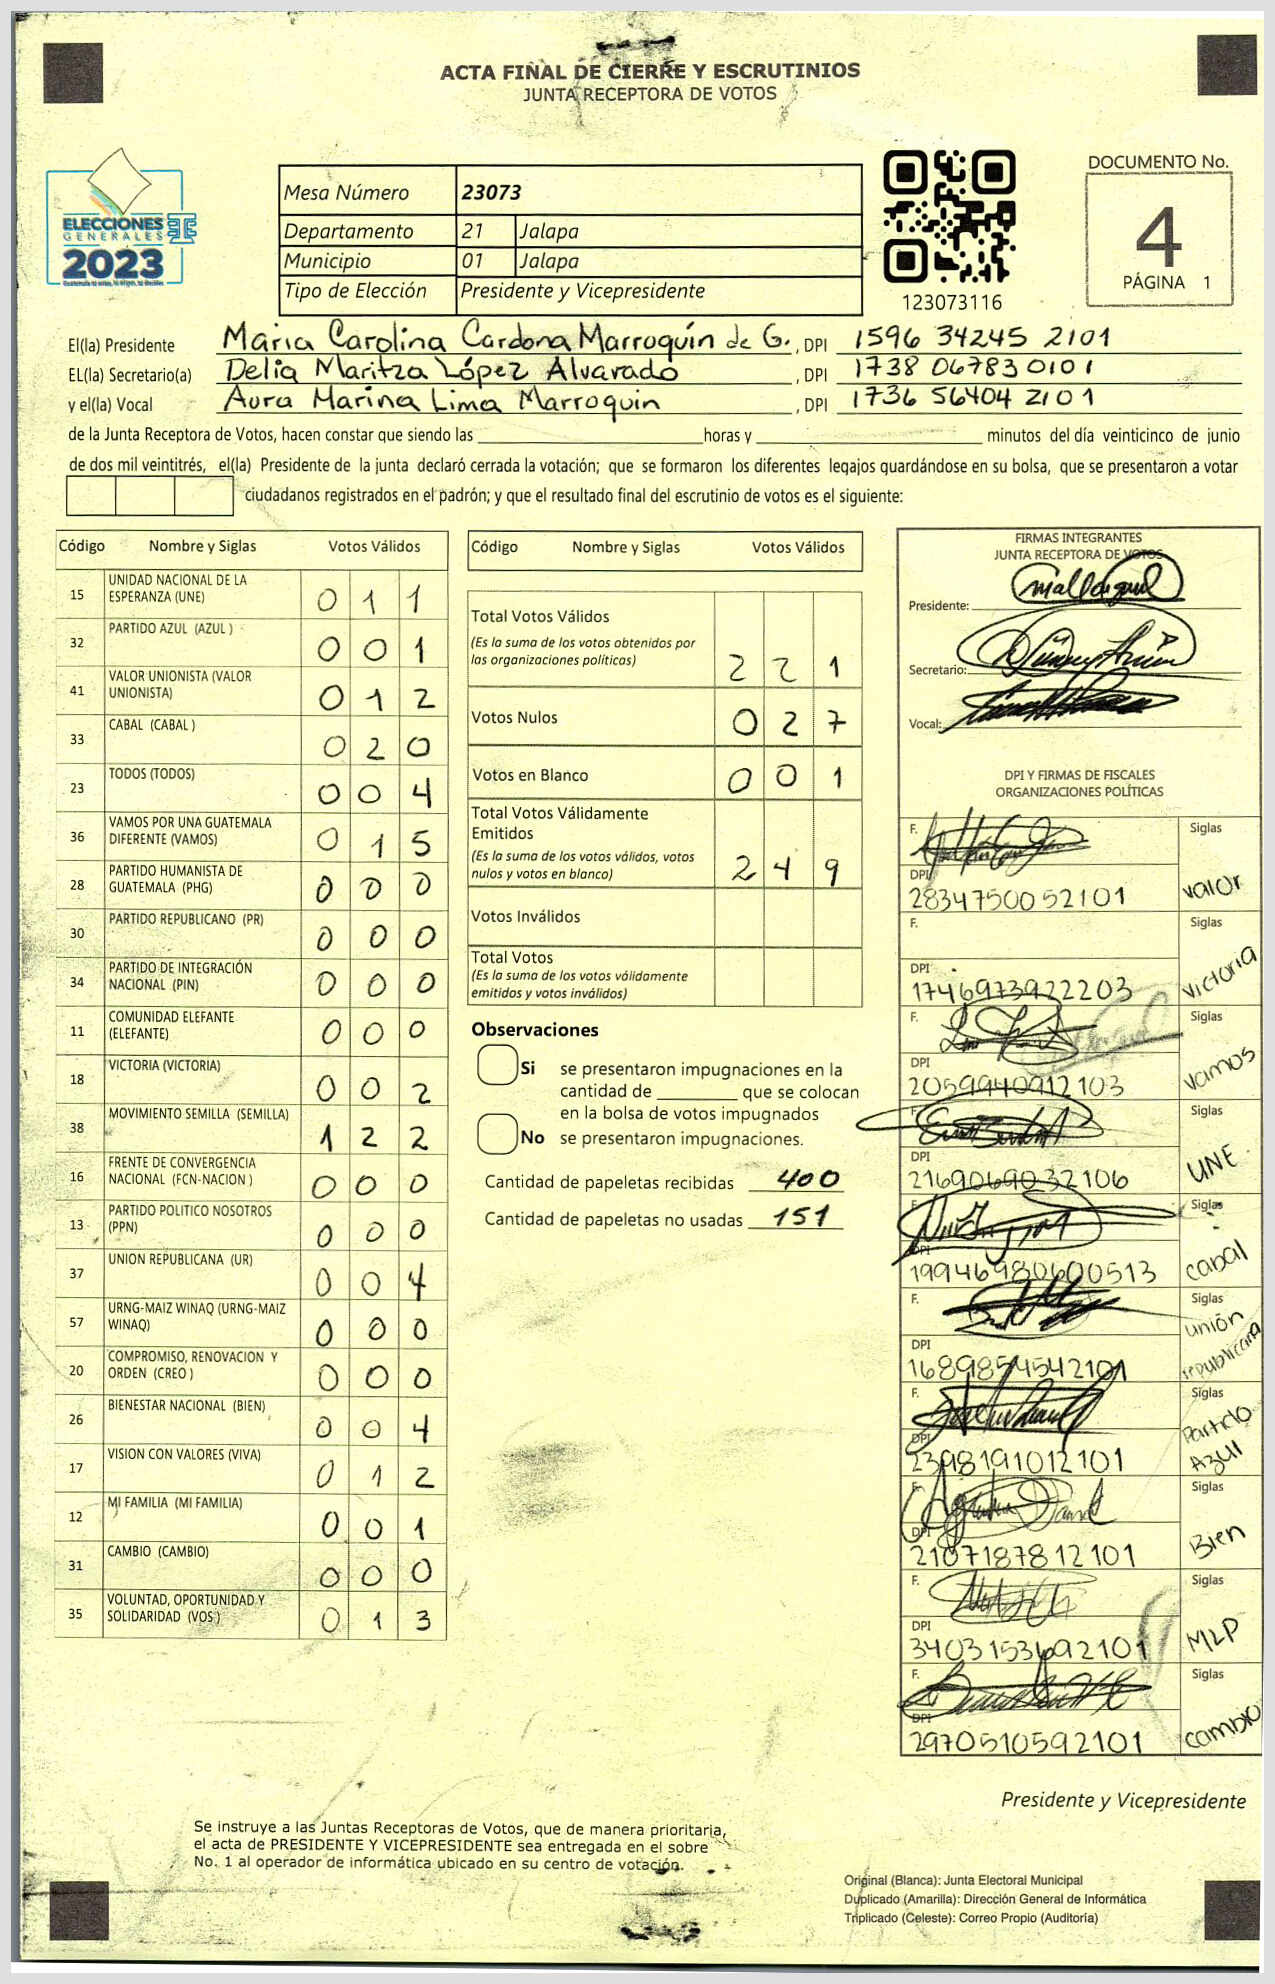 ACTA FINAL DE CIERRE Y ESCRUTINIOS
JUNTA RECEPTORA DE VOTOS
ELECCIONES
GENERALES
2023
Mesa Número 23073
Departamento 21 Jalapa
Municipio 01 Jalapa
Tipo de Elección Presidente y Vicepresidente
123073116
DOCUMENTO No.
4
PÁGINA 1
El(la) Presidente Maria Carolina Cardona Marroquín de G. , DPI 1596 34245 2101
EL(la) Secretario(a) Delia Maritza López Alvarado , DPI 1738 06783 0101
y el(la) Vocal Aura Marina Lima Marroquin , DPI 1736 56404 2101
de la Junta Receptora de Votos, hacen constar que siendo las horas y minutos del día veinticinco de junio
de dos mil veintitrés, el(la) Presidente de la junta declaró cerrada la votación; que se formaron los diferentes legajos guardándose en su bolsa, que se presentaron a votar
ciudadanos registrados en el padrón; y que el resultado final del escrutinio de votos es el siguiente:
Código Nombre y Siglas Votos Válidos
15 UNIDAD NACIONAL DE LA ESPERANZA (UNE) 0 1 1
32 PARTIDO AZUL (AZUL ) 0 0 1
41 VALOR UNIONISTA (VALOR UNIONISTA) 0 1 2
33 CABAL (CABAL ) 0 2 0
23 TODOS (TODOS) 0 0 4
36 VAMOS POR UNA GUATEMALA DIFERENTE (VAMOS) 0 1 5
28 PARTIDO HUMANISTA DE GUATEMALA (PHG) 0 0 0
30 PARTIDO REPUBLICANO (PR) 0 0 0
34 PARTIDO DE INTEGRACIÓN NACIONAL (PIN) 0 0 0
11 COMUNIDAD ELEFANTE (ELEFANTE) 0 0 0
18 VICTORIA (VICTORIA) 0 0 2
38 MOVIMIENTO SEMILLA (SEMILLA) 1 2 2
16 FRENTE DE CONVERGENCIA NACIONAL (FCN-NACION ) 0 0 0
13 PARTIDO POLITICO NOSOTROS (PPN) 0 0 0
37 UNION REPUBLICANA (UR) 0 0 4
57 URNG-MAIZ WINAQ (URNG-MAIZ WINAQ) 0 0 0
20 COMPROMISO, RENOVACION Y ORDEN (CREO ) 0 0 0
26 BIENESTAR NACIONAL (BIEN) 0 0 4
17 VISION CON VALORES (VIVA) 0 1 2
12 MI FAMILIA (MI FAMILIA) 0 0 1
31 CAMBIO (CAMBIO) 0 0 0
35 VOLUNTAD, OPORTUNIDAD Y SOLIDARIDAD (VOS ) 0 1 3
Código Nombre y Siglas Votos Válidos
Total Votos Válidos
(Es la suma de los votos obtenidos por
las organizaciones políticas) 2 2 1
Votos Nulos 0 2 7
Votos en Blanco 0 0 1
Total Votos Válidamente
Emitidos
(Es la suma de los votos válidos, votos
nulos y votos en blanco) 2 4 9
Votos Inválidos
Total Votos
(Es la suma de los votos válidamente
emitidos y votos inválidos)
Observaciones
Si se presentaron impugnaciones en la
cantidad de que se colocan
en la bolsa de votos impugnados
No se presentaron impugnaciones.
Cantidad de papeletas recibidas 400
Cantidad de papeletas no usadas 151
FIRMAS INTEGRANTES
JUNTA RECEPTORA DE VOTOS
Presidente:
Secretario:
Vocal:
DPI Y FIRMAS DE FISCALES
ORGANIZACIONES POLÍTICAS
F. Siglas
DPI
2834750052101 valor
F. Siglas
DPI
1746973922203 victoria
F. Siglas
DPI
2059940912103 vamos
F. Siglas
DPI
2169069032106 UNE
F. Siglas
DPI
19946980600513 cabal
F. Siglas
DPI
1689854542101 unión republicana
F. Siglas
DPI
2398191012101 Partido Azul
F. Siglas
DPI
2107187812101 Bien
F. Siglas
DPI
3403153692101 MLP
F. Siglas
DPI
2970510592101 cambio
Presidente y Vicepresidente
Se instruye a las Juntas Receptoras de Votos, que de manera prioritaria,
el acta de PRESIDENTE Y VICEPRESIDENTE sea entregada en el sobre
No. 1 al operador de informática ubicado en su centro de votación.
Original (Blanca): Junta Electoral Municipal
Duplicado (Amarilla): Dirección General de Informática
Triplicado (Celeste): Correo Propio (Auditoría)